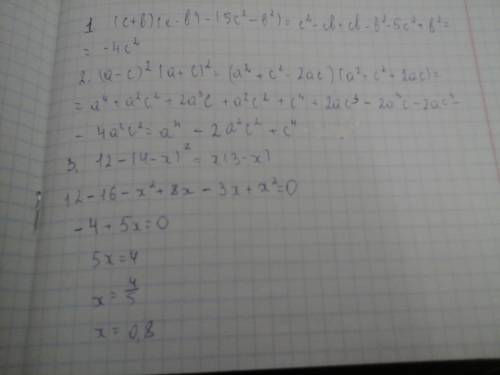 1. (c+b)(c-b)-(5c²-b²)= c²-cb+cb-b²-5c²+b²=
= -4c²
2. (a-c)² (a+c)² = (a²+c²-2ac)(a²+c²+2ac)=
= a⁴+a²c²+2a³c+a²c²+c⁴+2ac³-2a³c-2ac³-
- 4a²c² = a⁴ - 2a²c² + c⁴
3. 12-(4-x)² = x(3-x)
12-16-x²+8x-3x+x²=0
-4+5x=0
5x=4
x= 4/5
x= 0,8